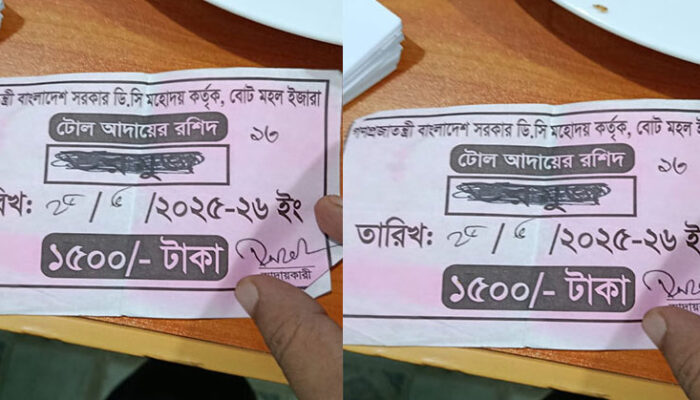 ন্ত্রী বাংলাদেশ সরকার ডি.সি মহোদয় কর্তৃক, বোট মহল ইজারা
টোল আদায়ের রশিদ
১৩
রিখ: ২৫ / ৫ /২০২৫-২৬ ইং
১৫০০/- টাকা
আদায়কারী
গণপ্রজাতন্ত্রী বাংলাদেশ সরকার ডি.সি মহোদয় কর্তৃক, বোট মহল ই
টোল আদায়ের রশিদ
১৩
তারিখ: ২৫ / ৫ /২০২৫-২৬ ই
১৫০০/- টাকা
আদায়